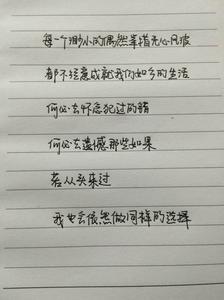 每一个渺小的偶然半指无心风波
都不经意成就我们如今的生活
何必去怀疑犯过的错
何必去遗憾那些如果
若从头来过
我也会依然做同样的选择